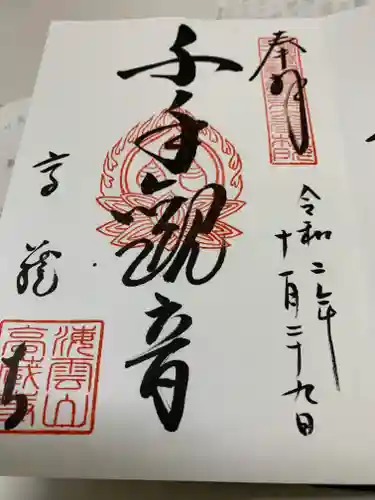 奉拝
令和二年
十一月二十九日
千手観音
高蔵寺
海雲山
高蔵寺